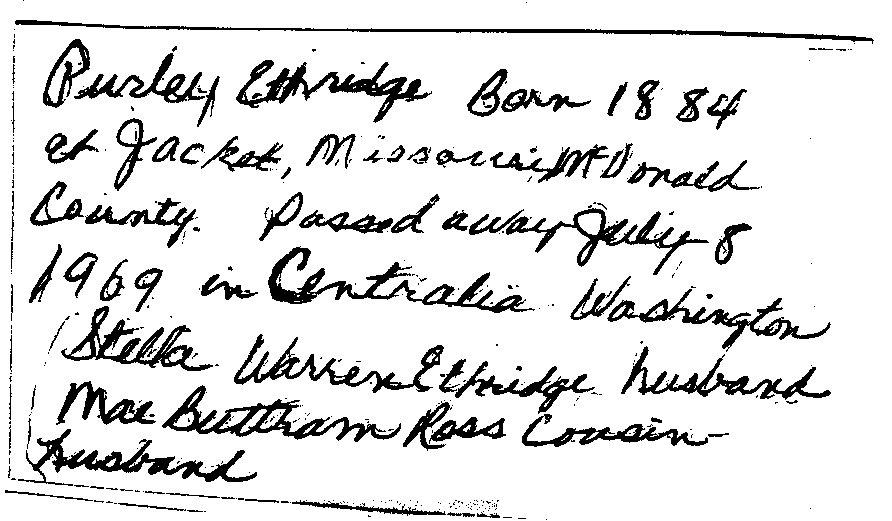 Purley Ethridge Born 1884
at Jacket, Missouri, McDonald
County. Passed away July 8
1969 in Centralia Washington
(Stella Warren Ethridge husband
Mae Buttham Ross Cousin
husband